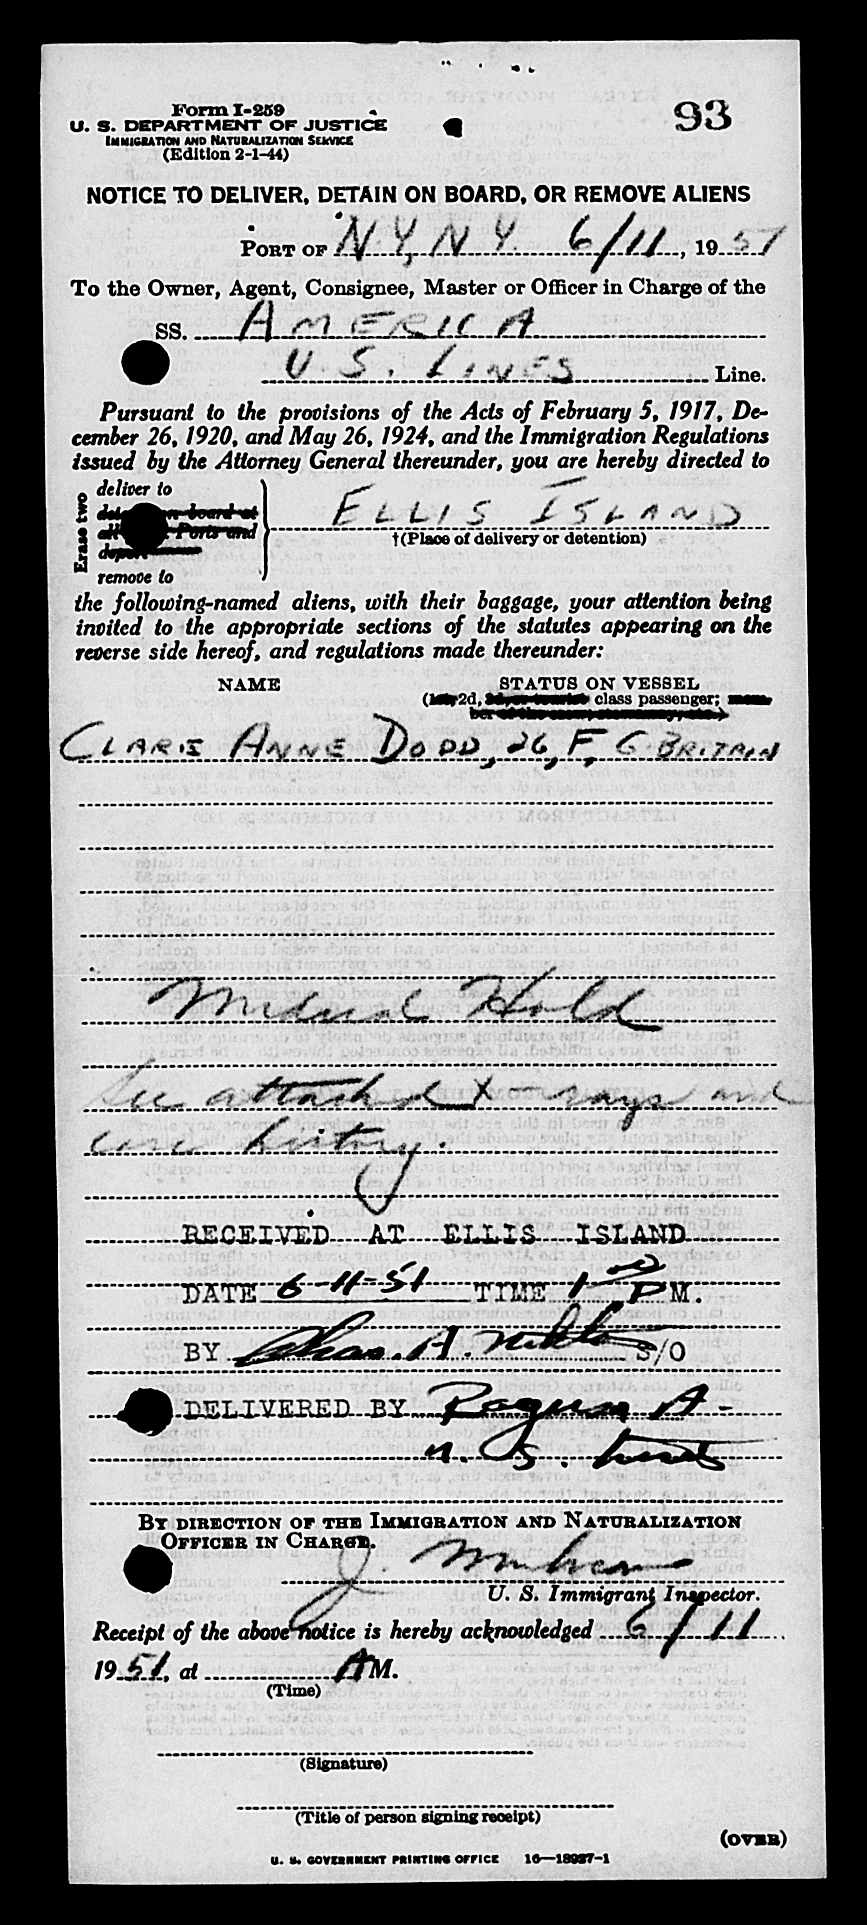 Form I-259
93
U. S. DEPARTMENT OF JUSTICE
IMMIGRATION AND NATURALIZATION SERVICE
(Edition 2-1-44)
NOTICE TO DELIVER, DETAIN ON BOARD, OR REMOVE ALIENS
PORT OF N.Y., N.Y. 6/11, 1951
To the Owner, Agent, Consignee, Master or Officer in Charge of the
SS. AMERICA
U.S. LINES Line.
Pursuant to the provisions of the Acts of February 5, 1917, De-
cember 26, 1920, and May 26, 1924, and the Immigration Regulations
issued by the Attorney General thereunder, you are hereby directed to
Erase two
deliver to
on board at
Ports and
remove to
ELLIS ISLAND
†(Place of delivery or detention)
the following-named aliens, with their baggage, your attention being
invited to the appropriate sections of the statutes appearing on the
reverse side hereof, and regulations made thereunder:
NAME STATUS ON VESSEL
(1st, 2d, class passenger;
ANNE DODD, 26, F, G. BRITAIN
Medical Hold
See attached X-rays and
case history.
RECEIVED AT ELLIS ISLAND
DATE 6-11-51 TIME 1 PM.
BY Chas. A. S/O
DELIVERED BY
U.S. Lines
BY DIRECTION OF THE IMMIGRATION AND NATURALIZATION
OFFICER IN CHARGE.
J.
U. S. Immigrant Inspector.
Receipt of the above notice is hereby acknowledged 6/11
1951, at AM.
(Time)
(Signature)
(Title of person signing receipt)
(OVER)
U. S. GOVERNMENT PRINTING OFFICE 16—18937-1